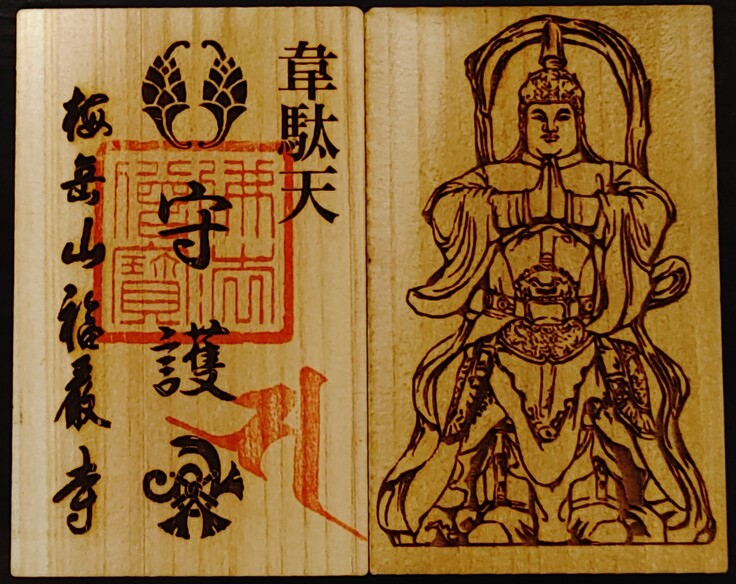 韋駄天
守護
佛法
僧寶
梅岳山福厳寺